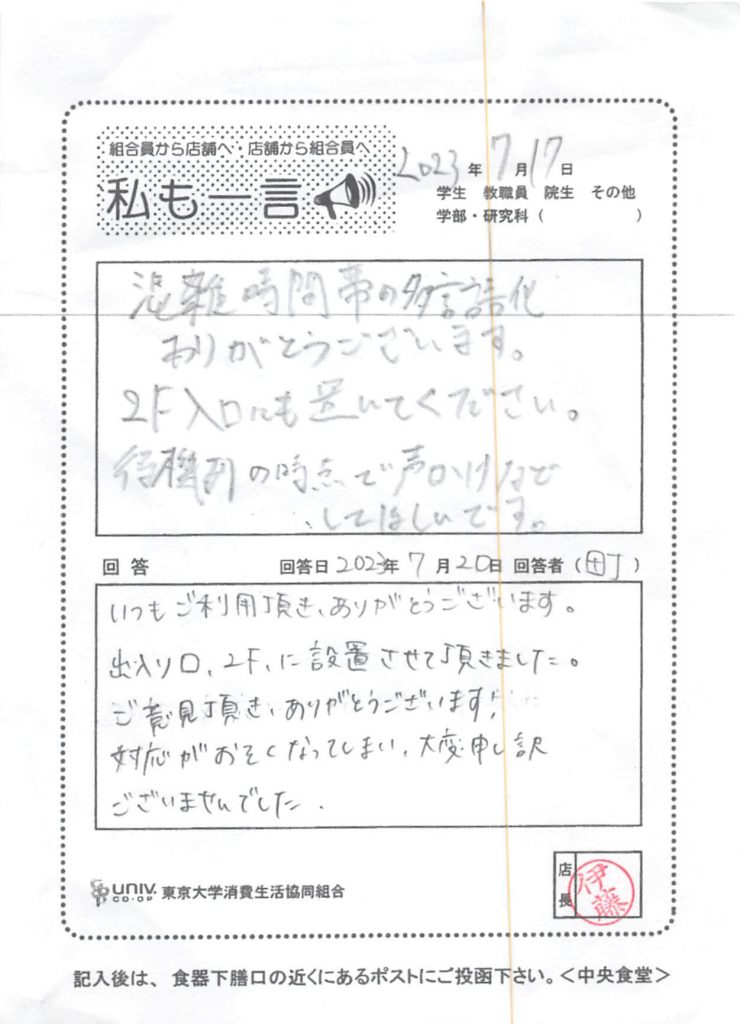 組合員から店舗へ・店舗から組合員へ
私も一言
2023年7月17日
学生 教職員 院生 その他
学部・研究科( )
混雑時間帯の多言語化
ありがとうございます。
2F入口にも置いてください。
待機列の時点で声かけなど
してほしいです。
回答 回答日2023年7月20日 回答者(町)
いつもご利用頂き、ありがとうございます。
出入り口、2F、に設置させて頂きました。
ご意見頂き、ありがとうございます!
対応がおそくなってしまい、大変申し訳
ございませんでした.
UNIV. CO-OP 東京大学消費生活協同組合
店長 伊藤
記入後は、食器下膳口の近くにあるポストにご投函下さい。<中央食堂>